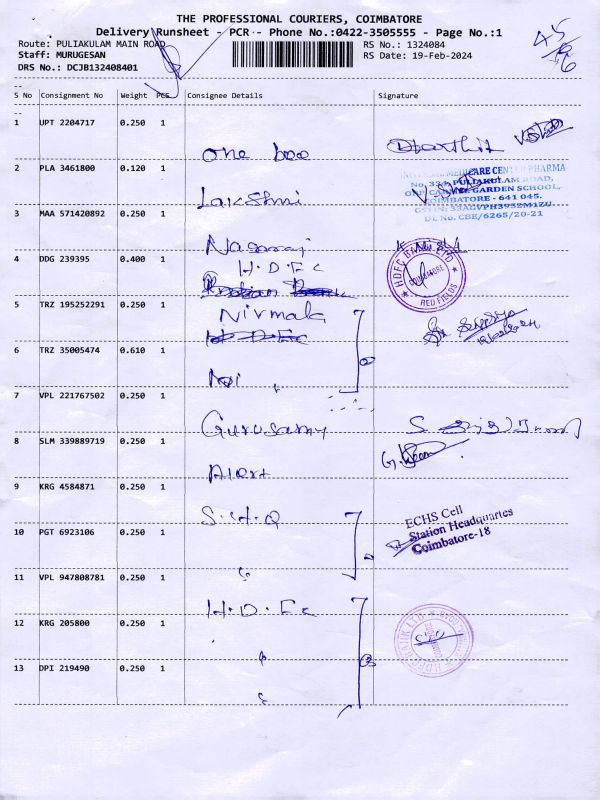 THE PROFESSIONAL COURIERS, COIMBATORE
Delivery Runsheet - PCR - Phone No.:0422-3505555 - Page No.:1
Route: PULIAKULAM MAIN ROAD
RS No.: 1324084
Staff: MURUGESAN
RS Date: 19-Feb-2024
DRS No.: DCJB132408401
45
S No Consignment No Weight PCS Consignee Details Signature
1 UPT 2204717 0.250 1
one
2 PLA 3461800 0.120 1
MEDICARE CENTER PHARMA
No. 324, PULIAKULAM ROAD,
GARDEN SCHOOL,
COIMBATORE - 641 045.
DL No. CBE/6265/20-21
Lakshmi
3 MAA 571420892 0.250 1
Nagaraj
4 DDG 239395 0.400 1
H.D.F.C
HDFC BANK LTD
COIMBATORE
RED FIELDS
5 TRZ 195252291 0.250 1
Nirmala
6 TRZ 35005474 0.610 1
7 VPL 221767502 0.250 1
Gurusamy
8 SLM 339889719 0.250 1
Alert
9 KRG 4584871 0.250 1
S.H.Q
ECHS Cell
Station Headquartes
Coimbatore-18
10 PGT 6923106 0.250 1
11 VPL 947808781 0.250 1
H.D.F.C
12 KRG 205800 0.250 1
13 DPI 219490 0.250 1